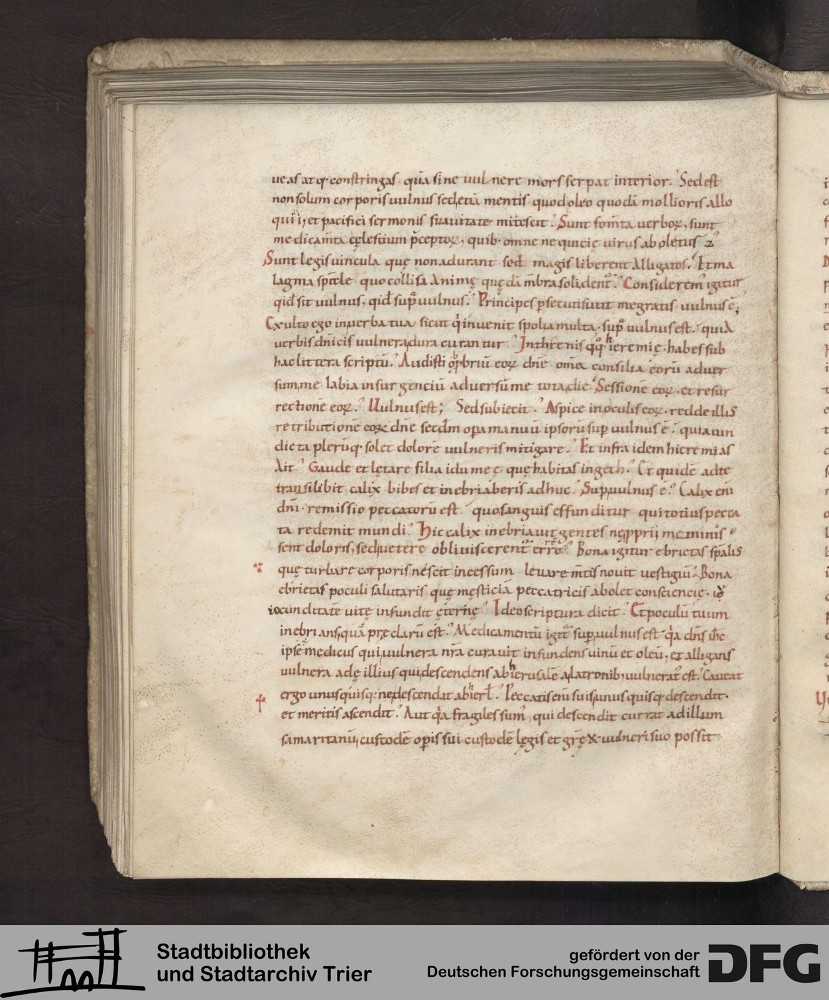 ueas atq; constringas. q̄a sine uulnere mors serpat interior. Sed est
non solum corporis uulnus sed etiā mentis. quod oleo quodā mollioris allo
quii, et pacifici sermonis suauitate mitescit. Sunt fomīta uerboꝝ, sunt
medicamīta cęlestium p̄ceptoꝝ, quib; omne nequicię virus aboletur.
Sunt legis uincula quę non adurant sed magis liberent alligatos. Et ma
lagma sp̄tale quo collisa animę quędā mēbra solident. Consideremꝰ igitur
qid sit uulnus. qid sup̄ uulnus. Principes p̄secuti sunt me gratis uulnus ē;
Exulto ego in uerba tua sicut q̄ inuenit spolia multa. sup̄ uulnus est. quia
uerbis dn̄icis uulnera dura curantur. In threnis qq; ieremię. habes sub
hac littera scriptū. Audisti opp̄briū eoꝝ dn̄e om̄a consilia eorū aduer
sum me labia insurgenciū aduersū me tota die. Sessionē eoꝝ. et resur
rectionē eoꝝ. Uulnus est; Sed subiecit. Aspice in oculis eoꝝ. redde illis
retributionē eoꝝ dn̄e secd̄m opa manuū ipsorū sup̄ uulnus ē. quia uin
dicta plerūq; solet dolorē uulneris mitigare. Et infra idem hieremias
Ait. Gaude et lętare filia idumeę. quę habitas in geth. Et quidē ad te
transilibit calix bibes et inebriaberis adhuc. Sup̄ uulnus ē. Calix eni
dn̄i. remissio peccatorū est. quo sanguis effunditur qui totius pecca
ta redemit mundi. Hic calix inebriauit gentes ne p̄prii meminis
sent doloris, sed uetere obliuiscerent errorē. Bona igitur ebrietas sp̄alis
quę turbare corporis nescit incessum. leuare m̄tis nouit uestigiū. Bona
ebrietas poculi salutaris quę męsticiā peccatricis abolet conscientię.
iocunditatē uitę infundit ęternę. Ideo scriptura dicit. Et poculū tuum
inebrians, quā pręclarū est. Medicamentū igit sup̄ uulnus est. q̄a dn̄s ih̄c
ipse medicus qui uulnera nr̄a curauit infundens uinū et oleū, et alligans
uulnera adę illius qui descendens ab ierusalē a latronib; uulneratꝰ est. Caueat
ergo unusquisq; ne descendat ab ierl̄. Peccatis enī suis unusquisq; descendit.
et meritis ascendit. Aut q̄a fragiles sumꝰ, qui descendit currat ad illum
samaritanū, custodē opis sui custodē lęgis et gr̄ę x. uulneri suo possit
Stadtbibliothek
und Stadtarchiv Trier
gefördert von der
Deutschen Forschungsgemeinschaft
DFG